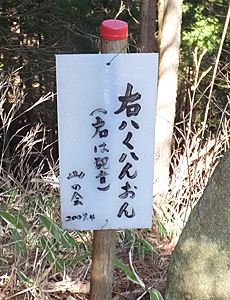 右ハくハんおん
(右は観音)
山の会
2009.4